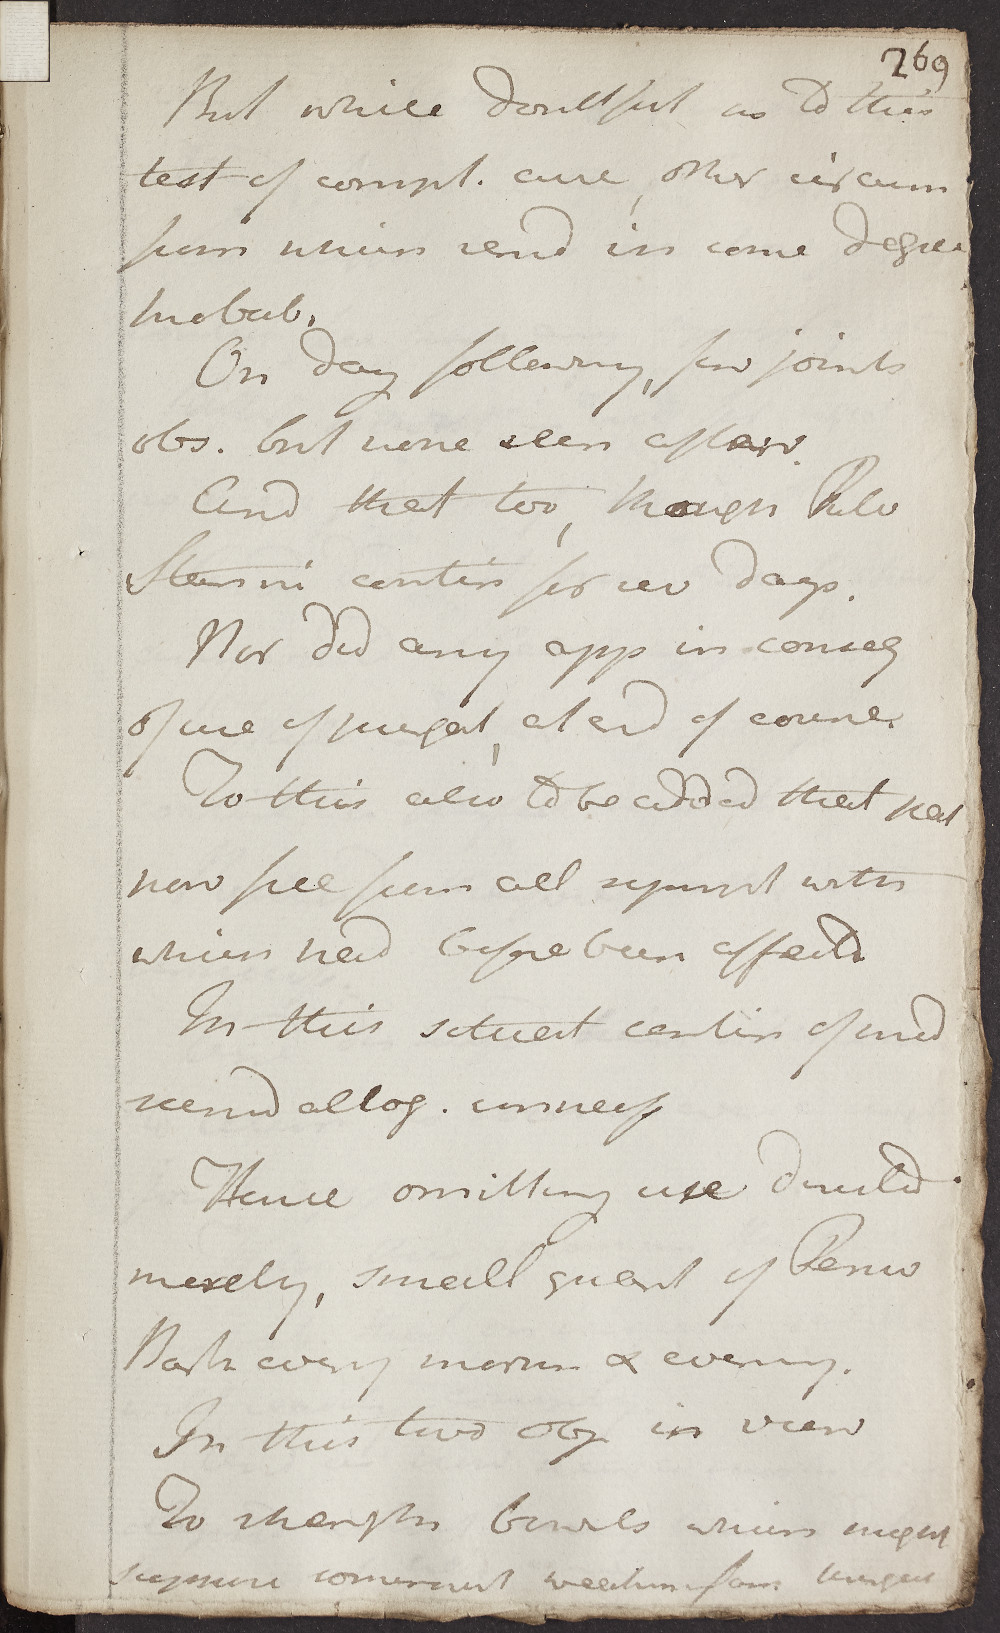 269
But while doubtful as to this
test of compl. cure, other circum
from which rend in some degree
probab.
On day following, few joints
obs. but none seen after.
And that too, though Pulv
Stanni contin for sev days.
Nor did any app in conseq
of use of purgat, at end of course.
To this also to be added that pat
now free from all sympt with
which had before been affectd
In this situat contin of med
seemd altog. unnecess
Hence omitting use directd
merely, small quant of Peruv
Bark every mornin & evening.
In this two obj in view
To strengthn bowels which might
suppose somewhat weakn from purgat